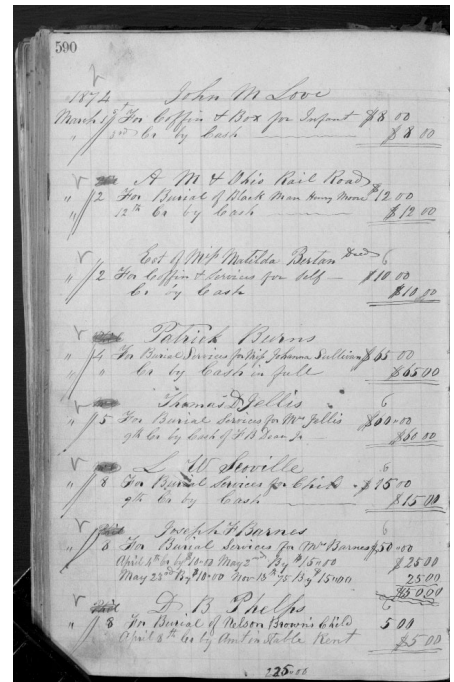 590
1874 John M Love
March 1st For Coffin & Box for Infant $8 00
" 3rd Cr by Cash $8 00
A M & Ohio Rail Road
" 2 For Burial of Black Man Henry Moore $12 00
" 12th Cr by Cash $12 00
Est of Miss Matilda Bertan Decd 6
" 2 For Coffin & Services for Self $10.00
Cr by Cash $10.00
Patrick Burns
" 4 For Burial Services for Miss Johanna Sullivan $65 00
" " Cr by Cash in full $65 00
Thomas D Jellis 6
" 5 For Burial Services for Mrs Jellis $60 00
9th Cr by Cash of F B Dean Jr $60 00
L W Scoville 6
" 8 For Burial Services for Child $15 00
9th Cr by Cash $15 00
Joseph F Barnes 6
" 8 For Burial Services for Mrs Barnes $50 00
April 4th Cr by $10.00 May 2nd By $15.00 $25 00
May 23rd By $10.00 Nov 18th 75 By $15.00 25 00
$50.00
D. B Phelps 6
" 8 For Burial of Nelson Brown's Child 5 00
April 8th Cr by Amt in Stable Rent $5 00
225.00